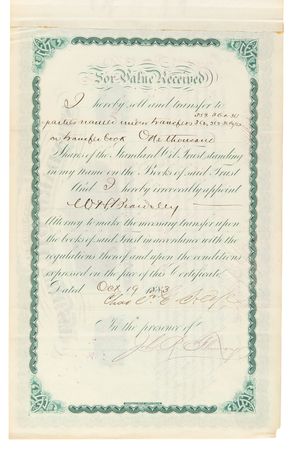 For Value Received
I hereby sell and transfer to
parties named under transfers
on transfer book One thousand
Shares of the Standard Oil Trust standing
in my name on the Books of said Trust
And I hereby irrevocably appoint
Attorney to make the necessary transfer upon
the books of said Trust in accordance with the
regulations thereof and upon the conditions
expressed on the face of this Certificate.
Dated Oct. 19 1883
Chas
In the presence of